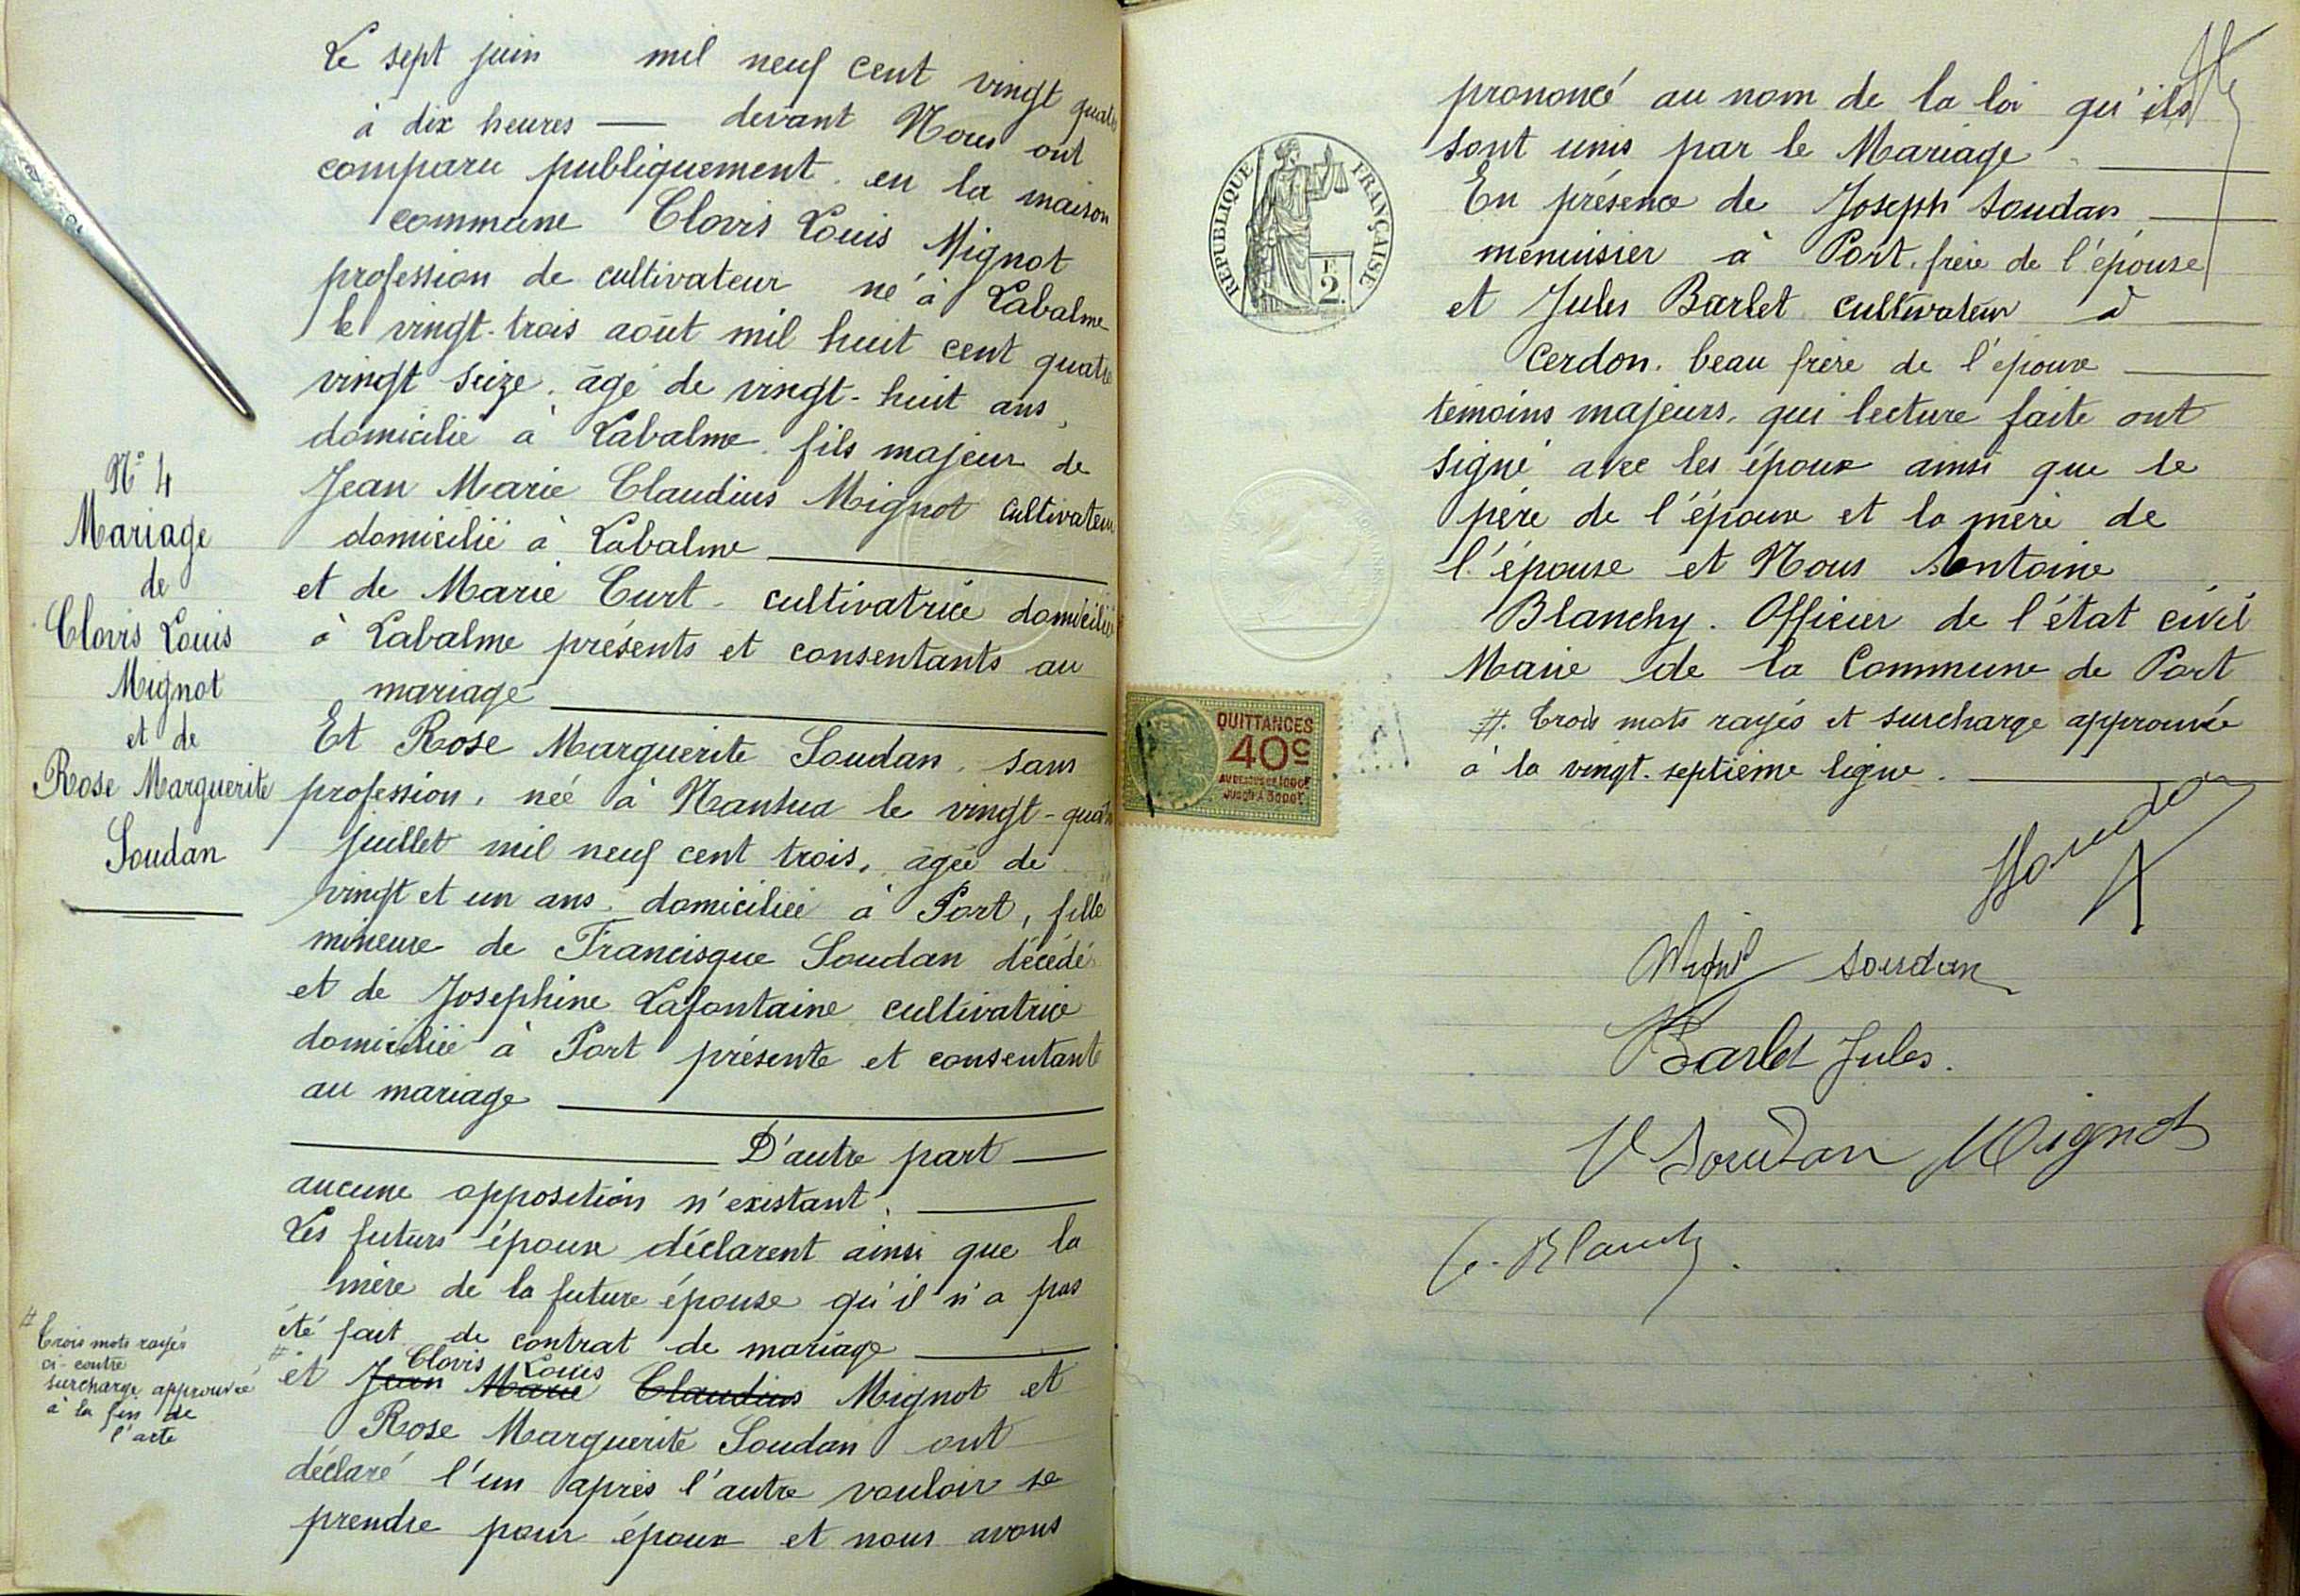 Le sept juin mil neuf cent vingt quatre
à dix heures — devant Nous ont
comparu publiquement en la maison
commune Clovis Louis Mignot
profession de cultivateur né à Labalme
le vingt-trois août mil huit cent quatre
vingt seize, âgé de vingt-huit ans,
domicilié à Labalme, fils majeur de
Jean Marie Claudius Mignot cultivateur
domicilié à Labalme
et de Marie Curt, cultivatrice domiciliée
à Labalme présents et consentants au
mariage
Et Rose Marguerite Soudan, sans
profession, née à Nantua le vingt-quatre
juillet mil neuf cent trois, âgée de
vingt et un ans, domiciliée à Port, fille
mineure de Francisque Soudan décédé
et de Josephine Lafontaine cultivatrice
domiciliée à Port présente et consentante
au mariage
D'autre part
aucune opposition n'existant.
Les futurs époux déclarent ainsi que la
mère de la future épouse qu'il n'a pas
été fait de contrat de mariage
Clovis Louis
# et Jean Marie Claudius Mignot et
Rose Marguerite Soudan ont
déclaré l'un après l'autre vouloir se
prendre pour époux et nous avons
N° 4
Mariage
de
Clovis Louis
Mignot
et de
Rose Marguerite
Soudan
# Trois mots rayés
ci-contre
surcharge approuvée
à la fin de
l'acte
prononcé au nom de la loi qu'ils
sont unis par le Mariage
En présence de Joseph Soudan
menuisier à Port, frère de l'épouse
et Jules Barlet cultivateur à
Cerdon, beau frère de l'époux
témoins majeurs, qui lecture faite ont
signé avec les époux ainsi que le
père de l'époux et la mère de
l'épouse et Nous Antoine
Blanchy. Officier de l'état civil
Maire de la Commune de Port
#. Trois mots rayés et surcharge approuvée
à la vingt-septième ligne.
RÉPUBLIQUE FRANÇAISE
2
QUITTANCES
40c
Soudan
Mignot Soudan
Barlet Jules.
V Soudan Mignot
Blanchy